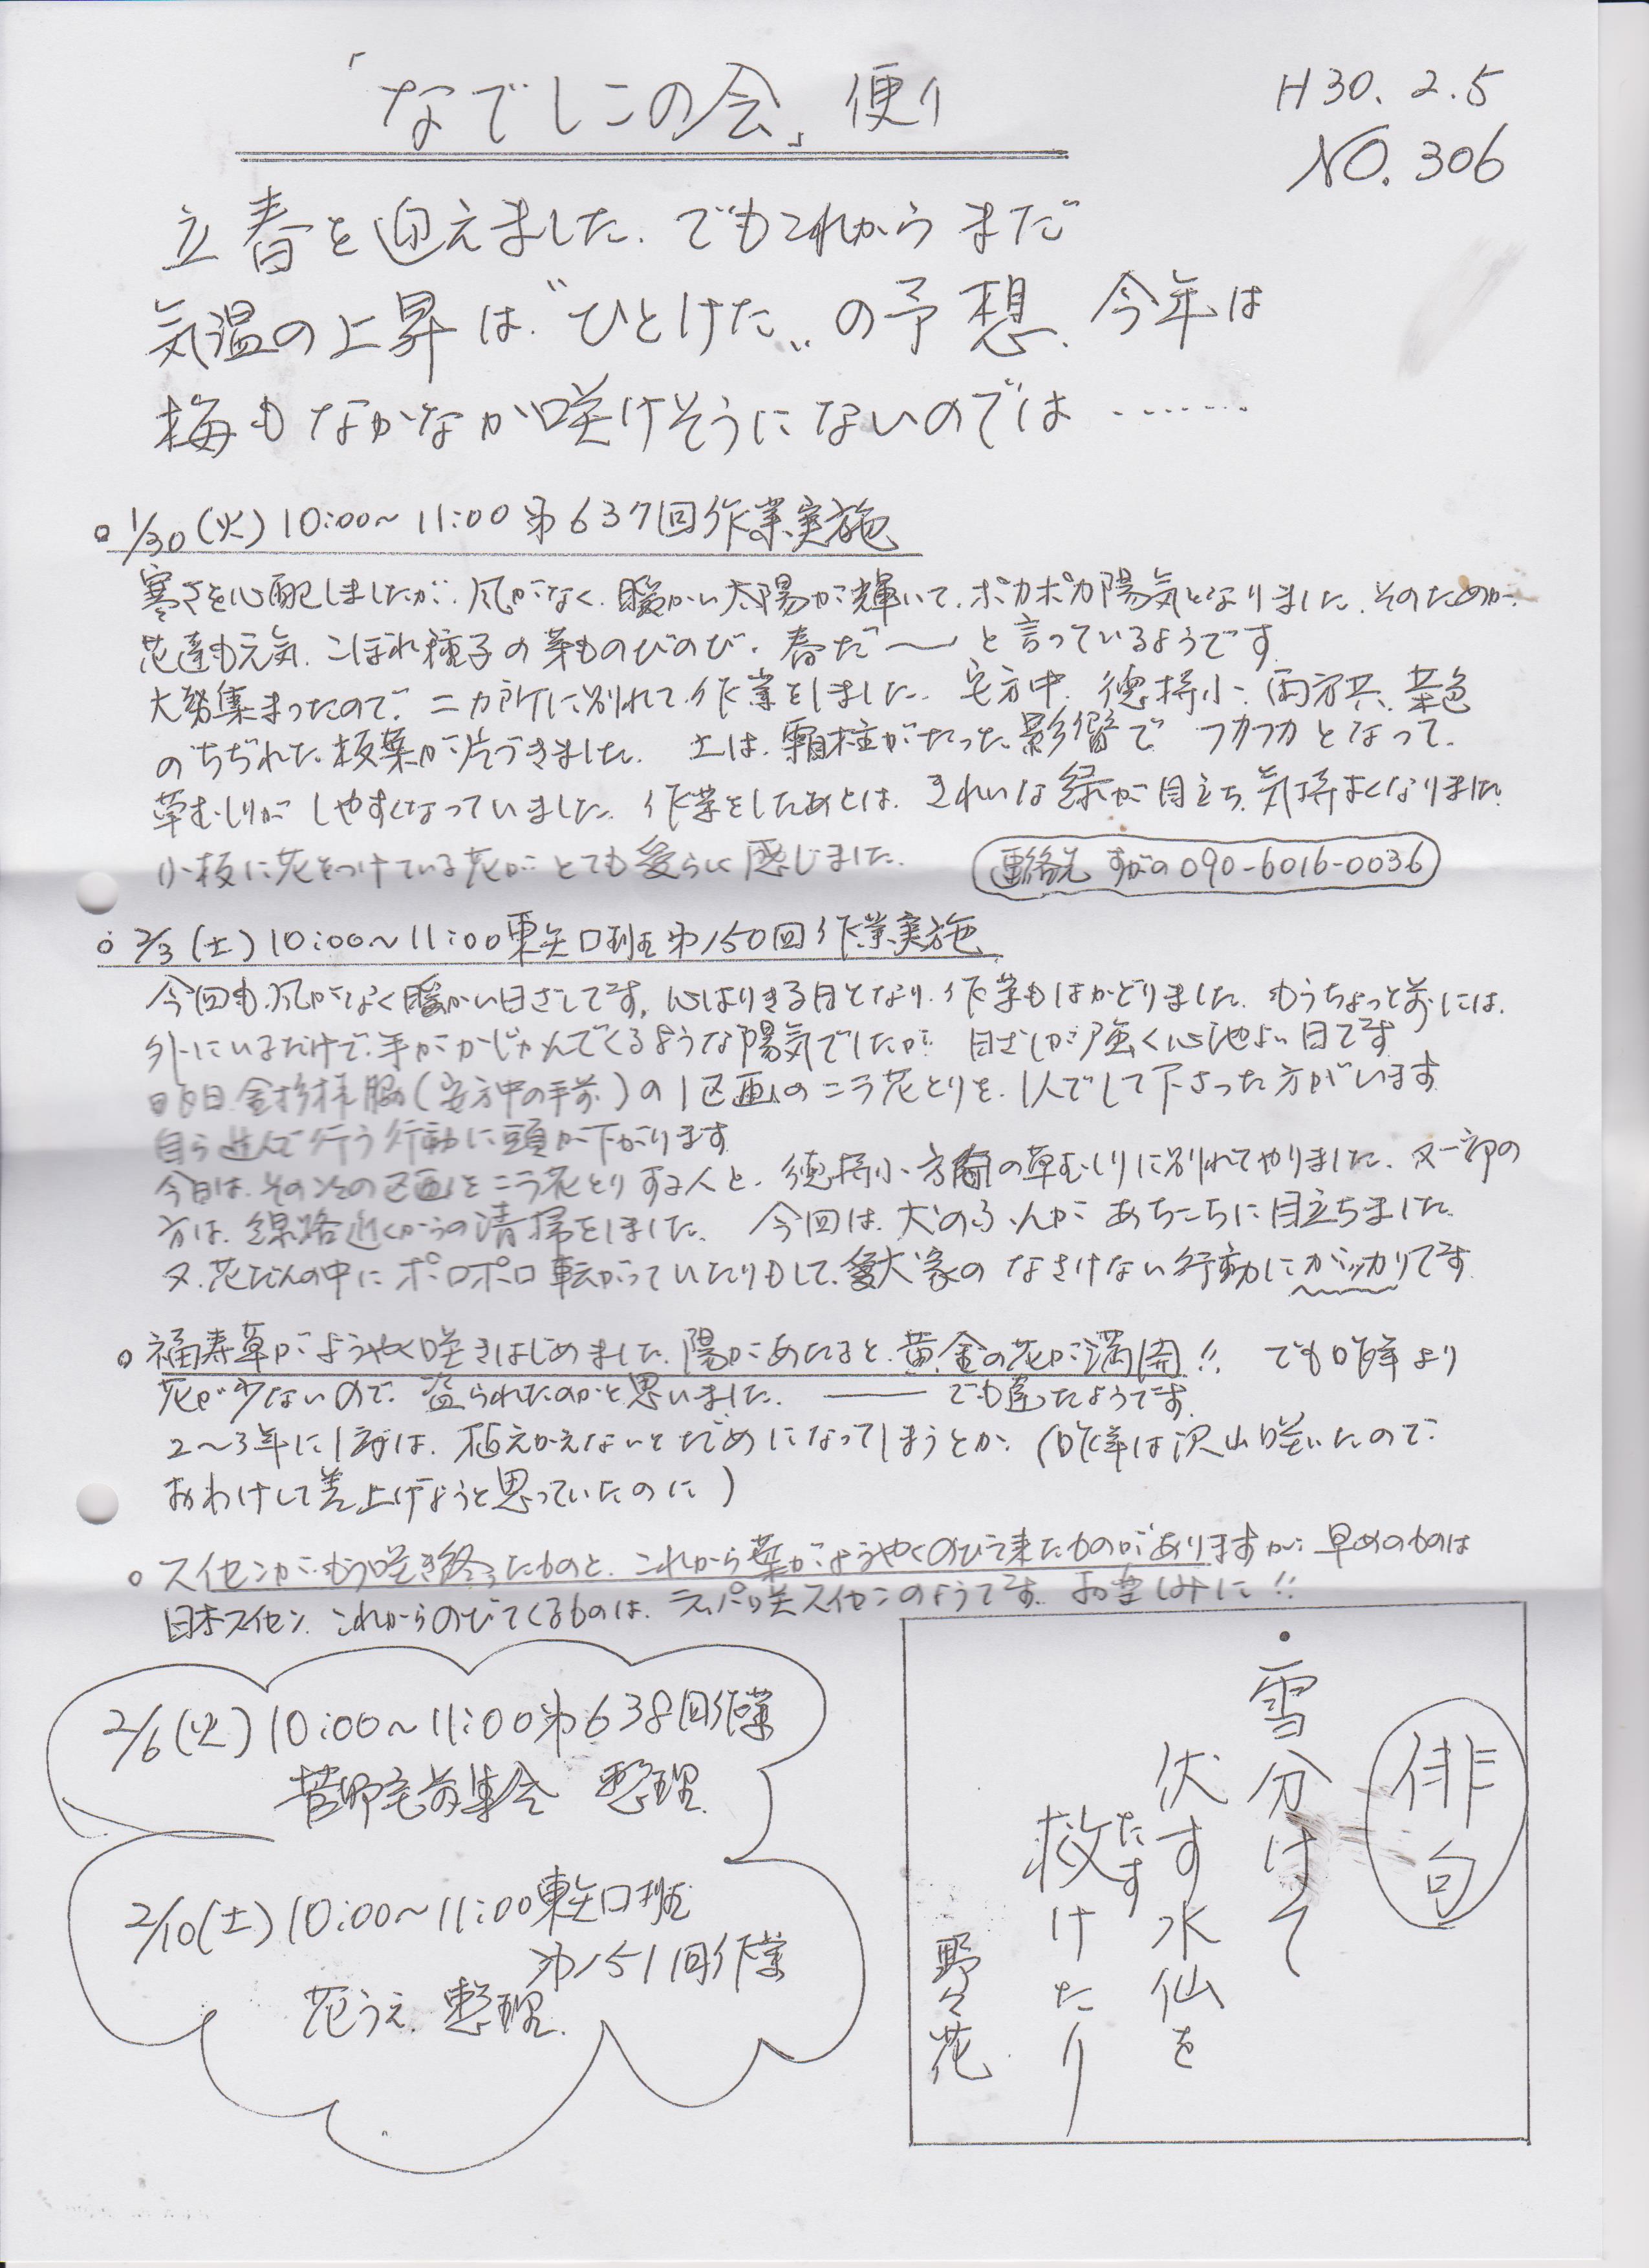 「なでしこの会」便り
H30.2.5
NO.306
立春を迎えました、でもこれからまだ
気温の上昇は"ひとけた"の予想、今年は
梅もなかなか咲けそうにないのでは………
○1/30(火)10:00～11:00第637回作業実施
寒さを心配しましたが、風がなく、暖かい太陽が輝いて、ポカポカ陽気となりました、そのためか、
花達も元気、こぼれ種子の芽ものびのび、春だ～～と言っているようです
大勢集まったので、二カ所に別れて作業をしました、安方中、徳持小、両方共、茶色
のちぢれた枝葉が片づきました、土は、霜柱がたった影響でフカフカとなって、
草むしりがしやすくなっていました、作業をしたあとは、きれいな緑が目立ち、気持よくなりました
小枝に花をつけている花がとても愛らしく感じました、
連絡先 すがの 090-6016-0036
○2/3(土)10:00～11:00東矢口班第150回作業実施
今回も、風がなく暖かい日ざしです、心はりきる日となり、作業もはかどりました、もうちょっと前には、
外にいるだけで、手がかじかんでくるような陽気でしたが、日ざしが強く心地よい日です
昨日、金杉様脇(安方中の手前)の1区画のニラ花とりを、1人でして下さった方がいます
自ら進んで行う行動に頭が下がります
今日は、その次の区画をニラ花とりする人と、徳持小方面の草むしりに別れてやりました、又一部の
方は、線路近くからの清掃をしました、今回は、犬のふんがあちこちに目立ちました
又、花だんの中にポロポロ転がっていたりもして、愛犬家のなさけない行動にガッカリです
○福寿草がようやく咲きはじめました、陽があたると、黄金の花が満開!!でも昨年より
花が少ないので、盗られたのかと思いました、――でも違ったようです、
2～3年に1度は、植えかえないとだめになってしまうとか、(昨年は沢山咲いたので
おわけして差上げようと思っていたのに)
○スイセンが、もう咲き終ったものと、これから葉がようやくのびて来たものがありますが、早めのものは
日本スイセン、これからのびてくるものは、ラッパ咲スイセンのようです、お楽しみに!!
2/6(火)10:00～11:00第638回作業
菅野宅前集合 整理、
2/10(土)10:00～11:00東矢口班
第151回作業
花うえ、整理、
俳句
・雪分けて
伏す水仙を
救けたり
たす
野々花